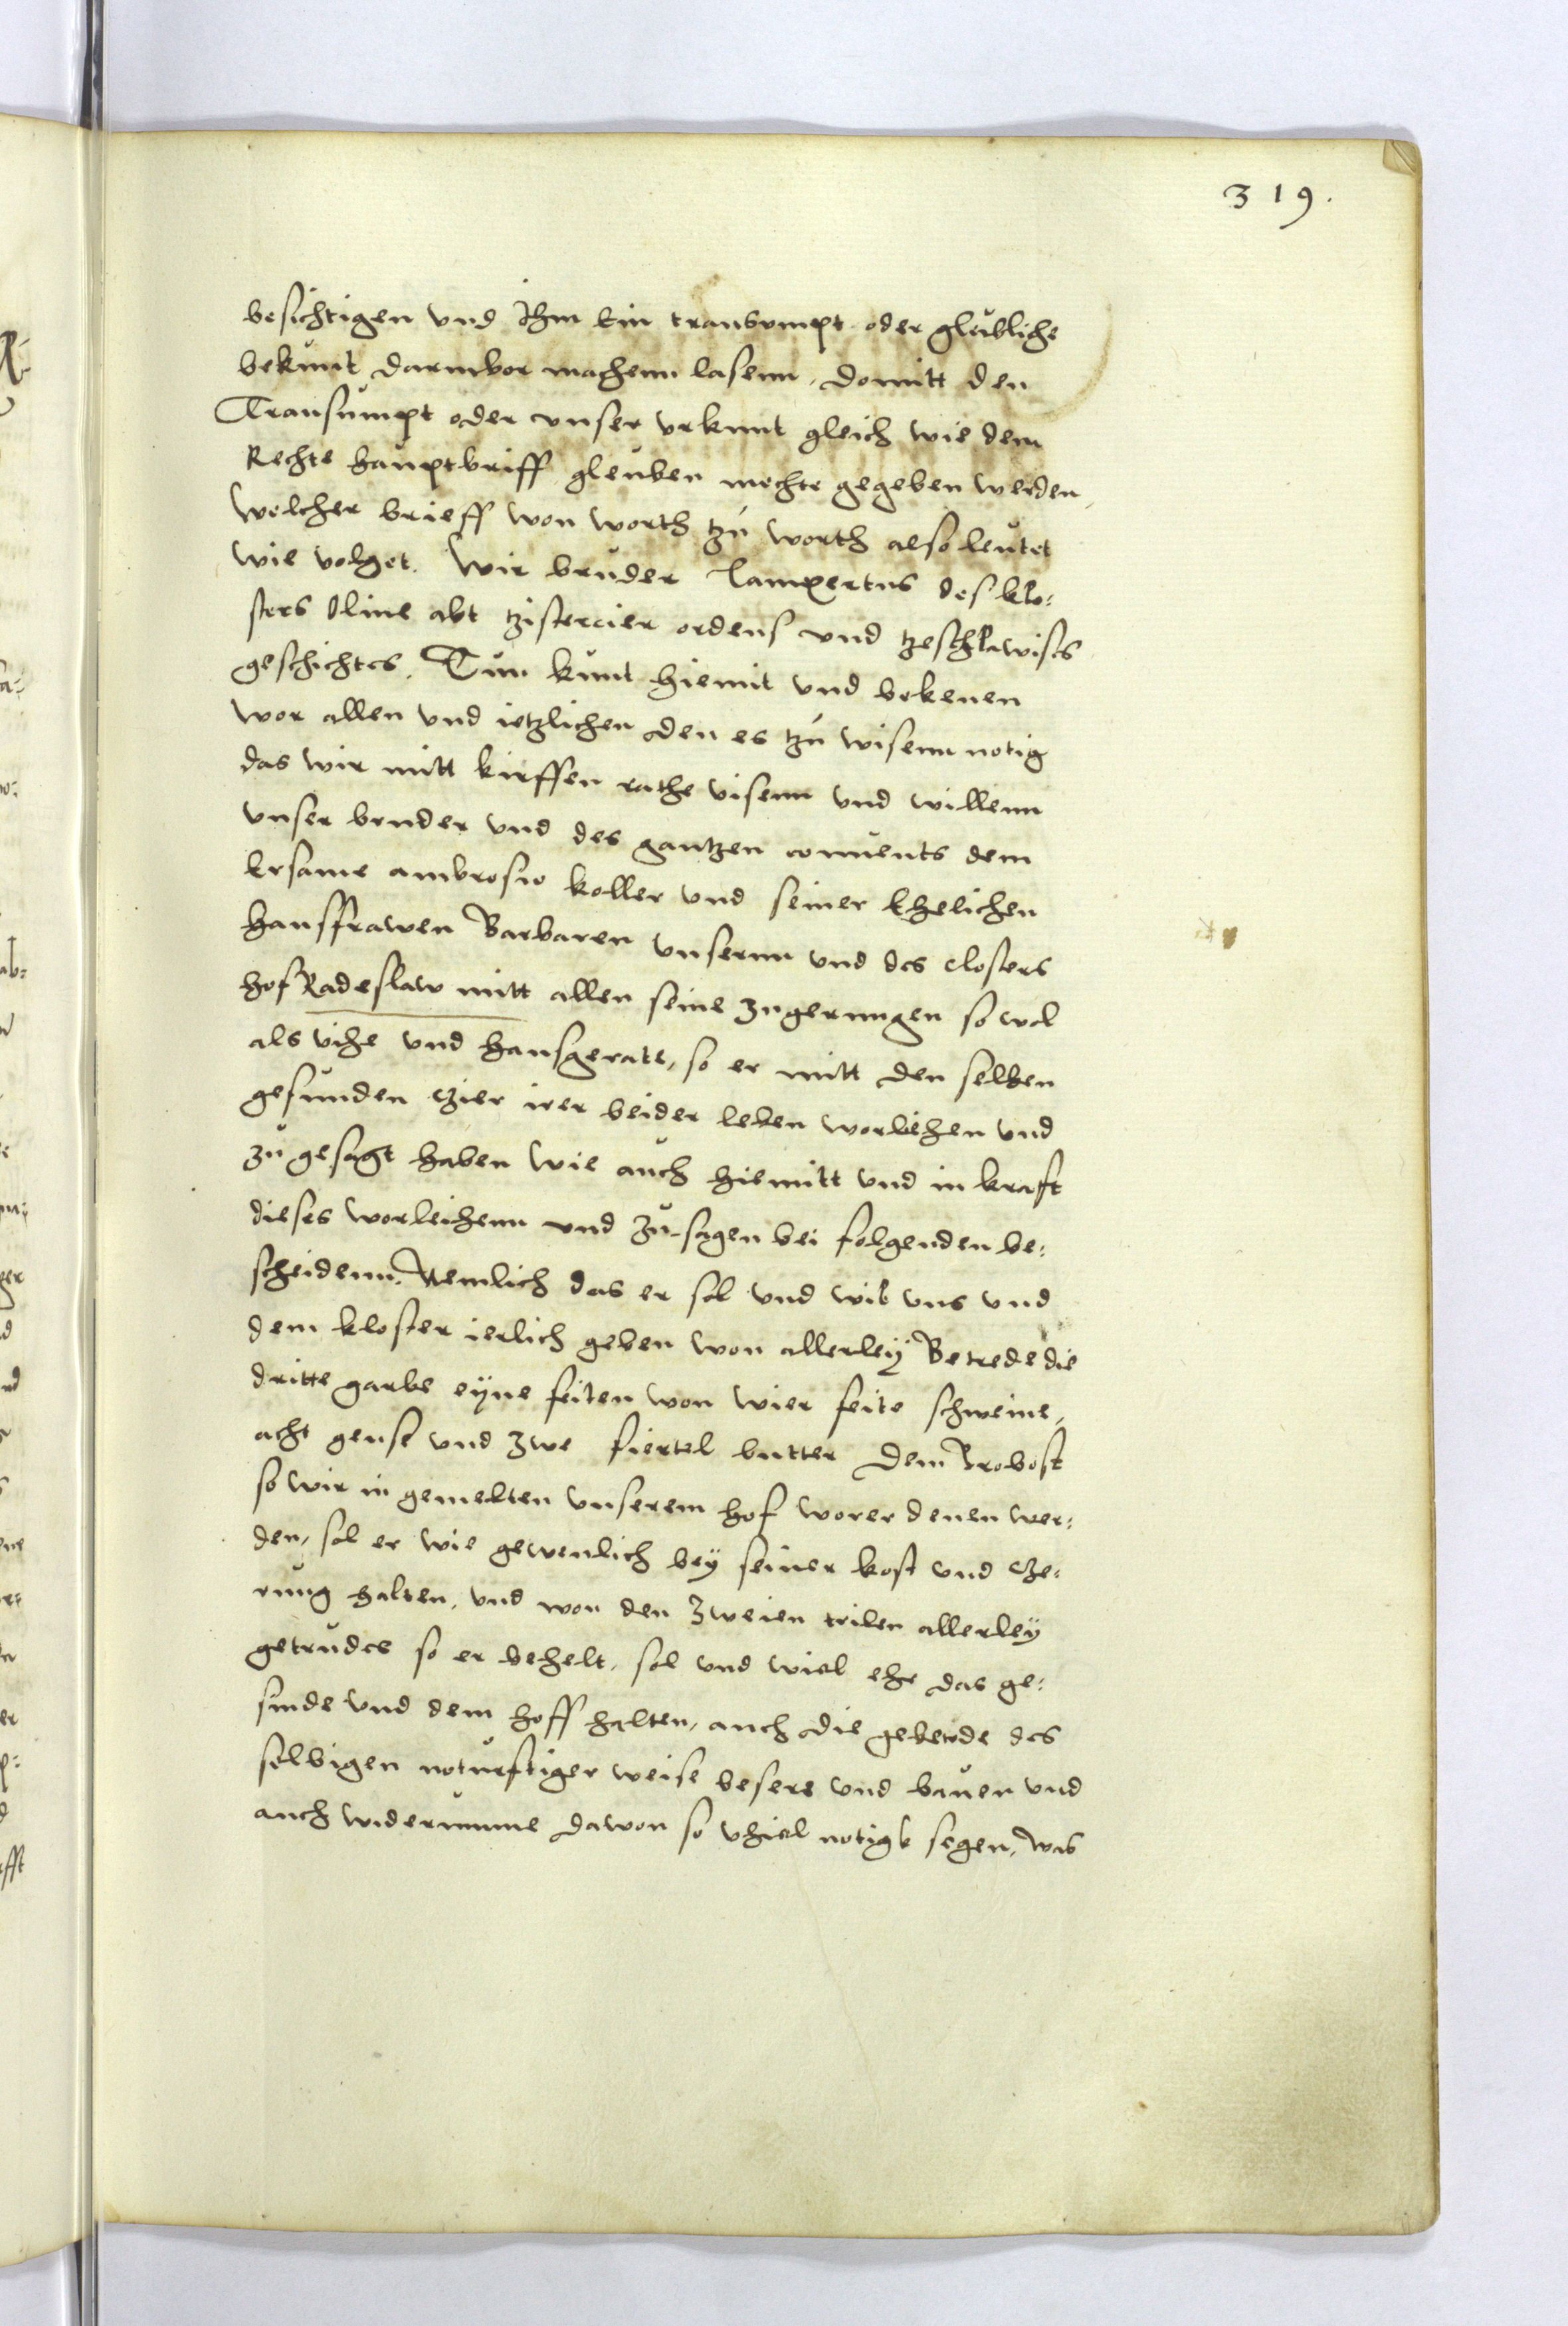 319.
besichtigen vnd Ihm kin transumpt oder gleubliche
bekunt darmbor machenn lasenn, domitt den
Transumpt oder vnser vrkunt gleich wie dem
Rechte hauptbriff gleuben mechte gegeben werden,
welcher brieff won worth tzu worth also leutet
wie volget. Wir bruder Lampertus des klo:
sters Oline abt tzistercier ordens vnd
geschichtes. Tun kunt hiemit vnd bekenen
wor allen vnd ietzlichen den es tzu wisenn notig
das wir mitt rathe visenn vnd willenn
vnser bruder vnd des gantzen conuents dem
Ersame ambrosio koller vnd seiner Ehelichen
hausfrawen Barbaren vnsernn vnd des closters
hof Radeslaw mitt allen seine zugerungen so wol
als vihe vnd hausgerate, so er mitt den selben
gefunden tzier irer beider leben worlihen vnd
zu gesagt haben wie auch hiemitt vnd in kraft
dieses worleihenn vnd zu-sagen bei folgenden be:
scheidenn. Nemlich das er sol vnd wil vns vnd
dem kloster ierlich geben won allerleÿ Betrede die
dritte garbe eÿne seiten won wier feite schweine,
acht gense vnd zwe fiertel butter dem Probost
so wir in gemelten vnserem hof worer denen wer:
den, sol er wie gewenlich beÿ seiner kost vnd tze:
rung halten, vnd won den zweien teilen allerleÿ
getrudes so er behelt, sol vnd wiel ehr das ge:
sinde vnd dem hoff halten, auch die gebewde des
selbigen noturftiger weise besere vnd bauen vnd
auch widerumme dawon so vhiel notigk segen, was